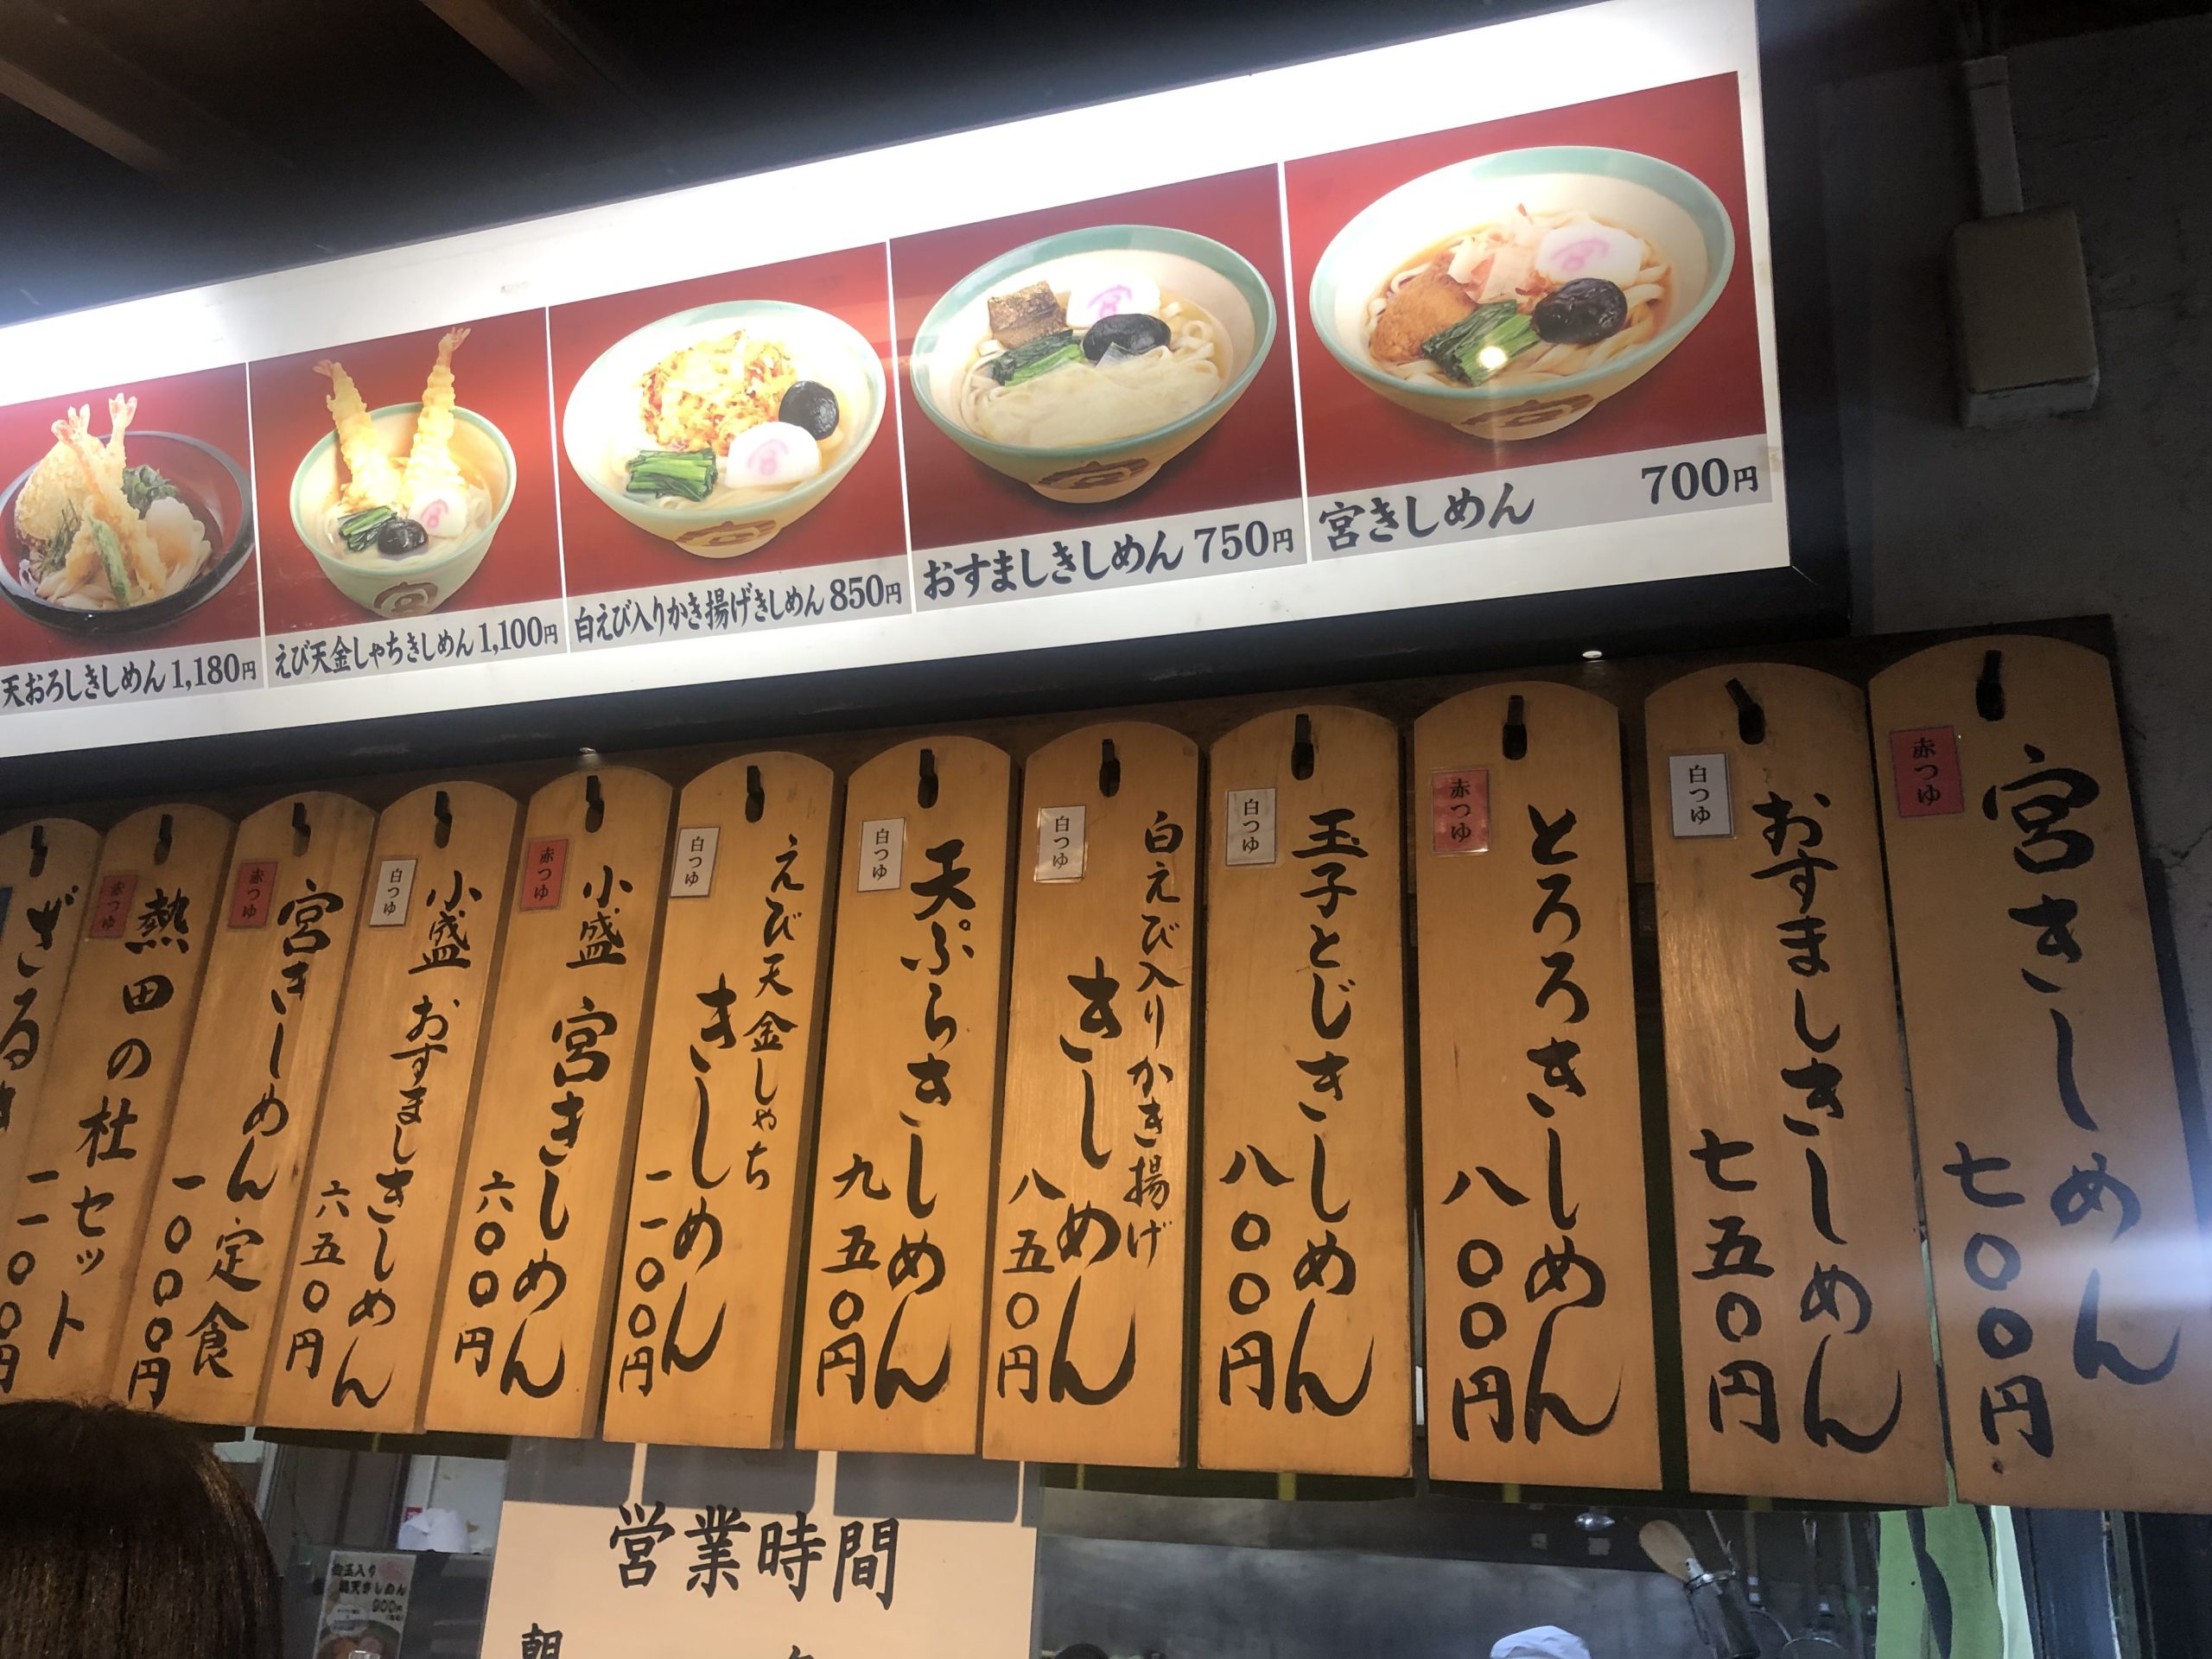 天おろしきしめん 1,180円
えび天金しゃちきしめん 1,100円
白えび入りかき揚げきしめん 850円
おすましきしめん 750円
宮きしめん 700円
赤つゆ
宮きしめん
七〇〇円
白つゆ
おすましきしめん
七五〇円
赤つゆ
とろろきしめん
八〇〇円
白つゆ
玉子とじきしめん
八〇〇円
白つゆ
白えび入りかき揚げ
きしめん
八五〇円
白つゆ
天ぷらきしめん
九五〇円
白つゆ
えび天金しゃち
きしめん
一一〇〇円
赤つゆ
小盛 宮きしめん
六〇〇円
白つゆ
小盛 おすましきしめん
六五〇円
赤つゆ
宮きしめん定食
一〇〇〇円
赤つゆ
熱田の杜セット
ざるき
営業時間
朝
900円